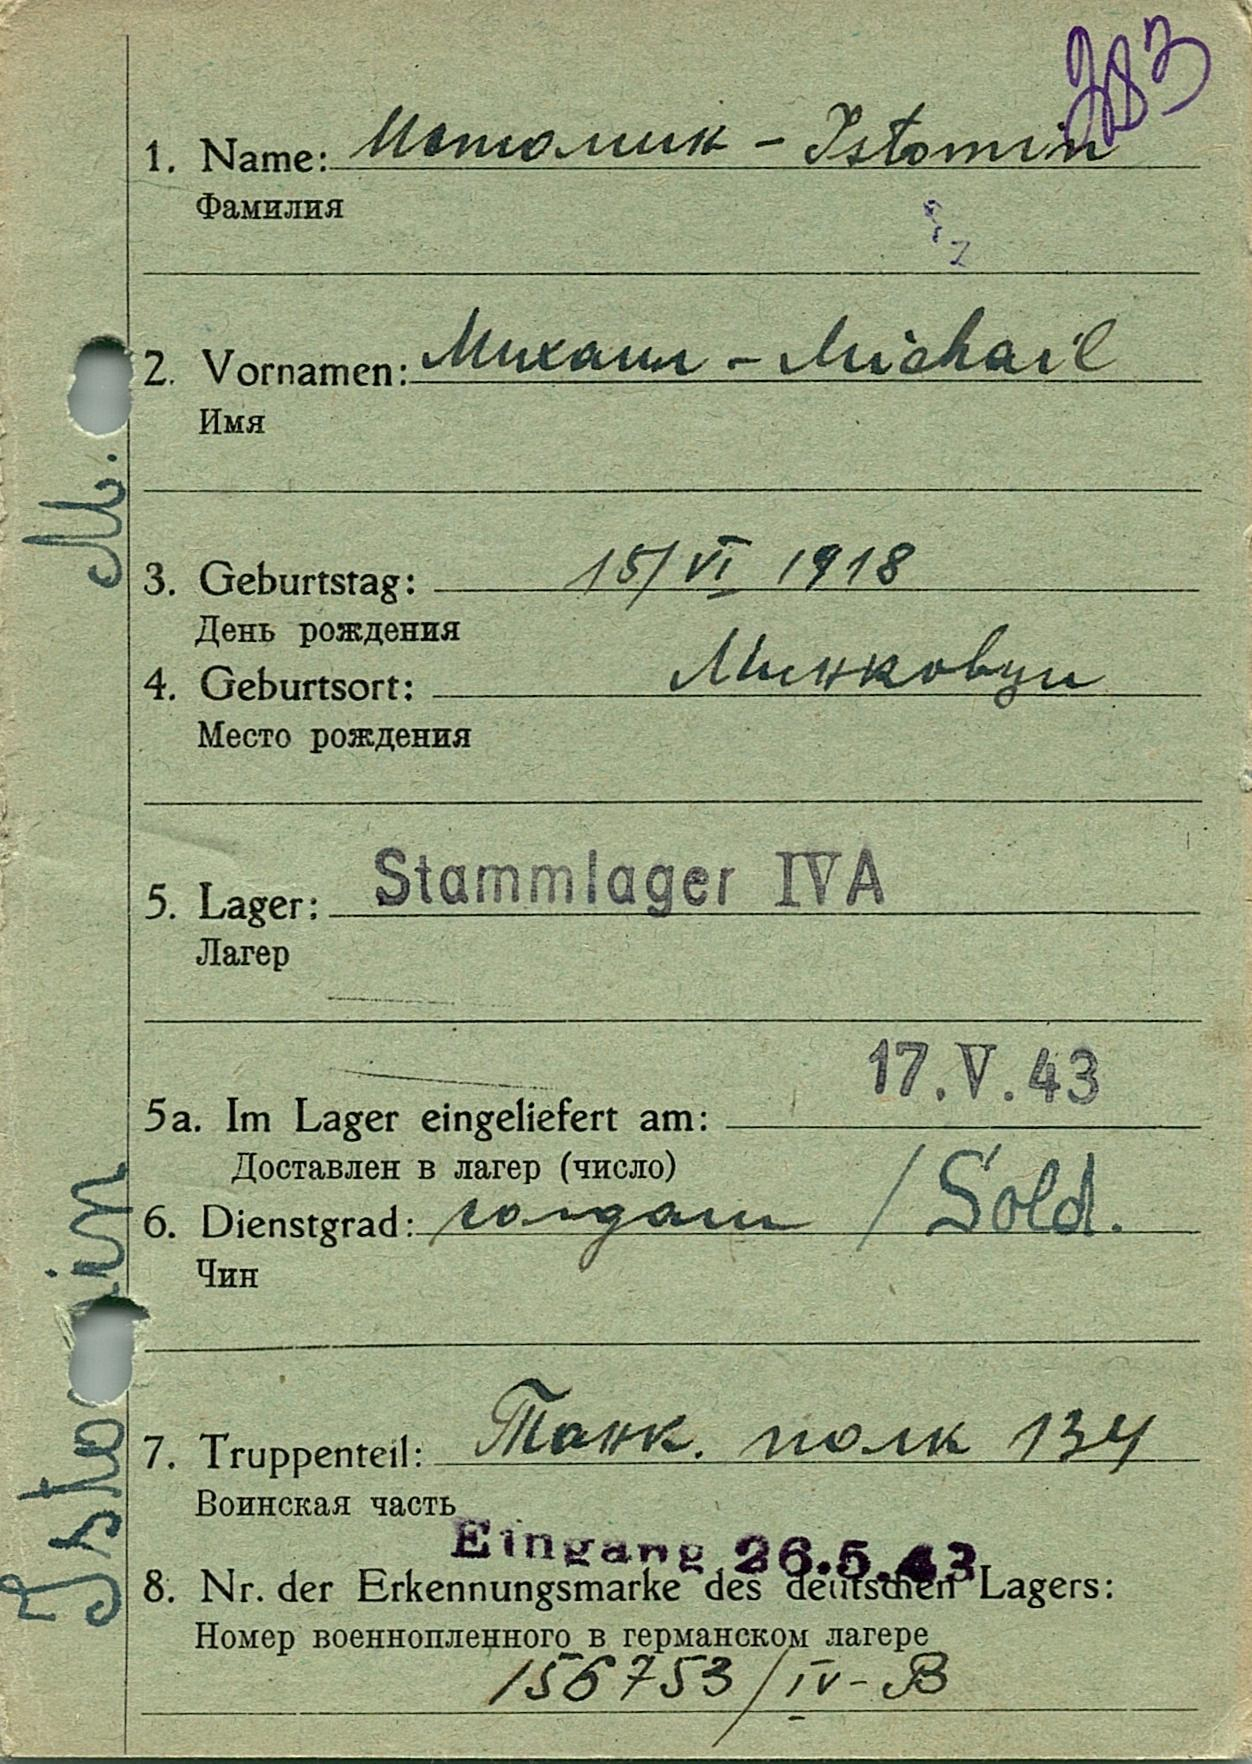 383
1. Name: Истомин - Istomin
Фамилия
2. Vornamen: Михаил - Michail
Имя
3. Geburtstag: 15/VI 1918
День рождения
4. Geburtsort: Минковци
Место рождения
5. Lager: Stammlager IVA
Лагер
17.V.43
5a. Im Lager eingeliefert am:
Доставлен в лагер (число)
6. Dienstgrad: солдат / Sold.
Чин
7. Truppenteil: Танк. полк 134
Воинская часть
Eingang 26.5.43
8. Nr. der Erkennungsmarke des deutschen Lagers:
Номер военнопленного в германском лагере
156753/IV-B
Istomin M.